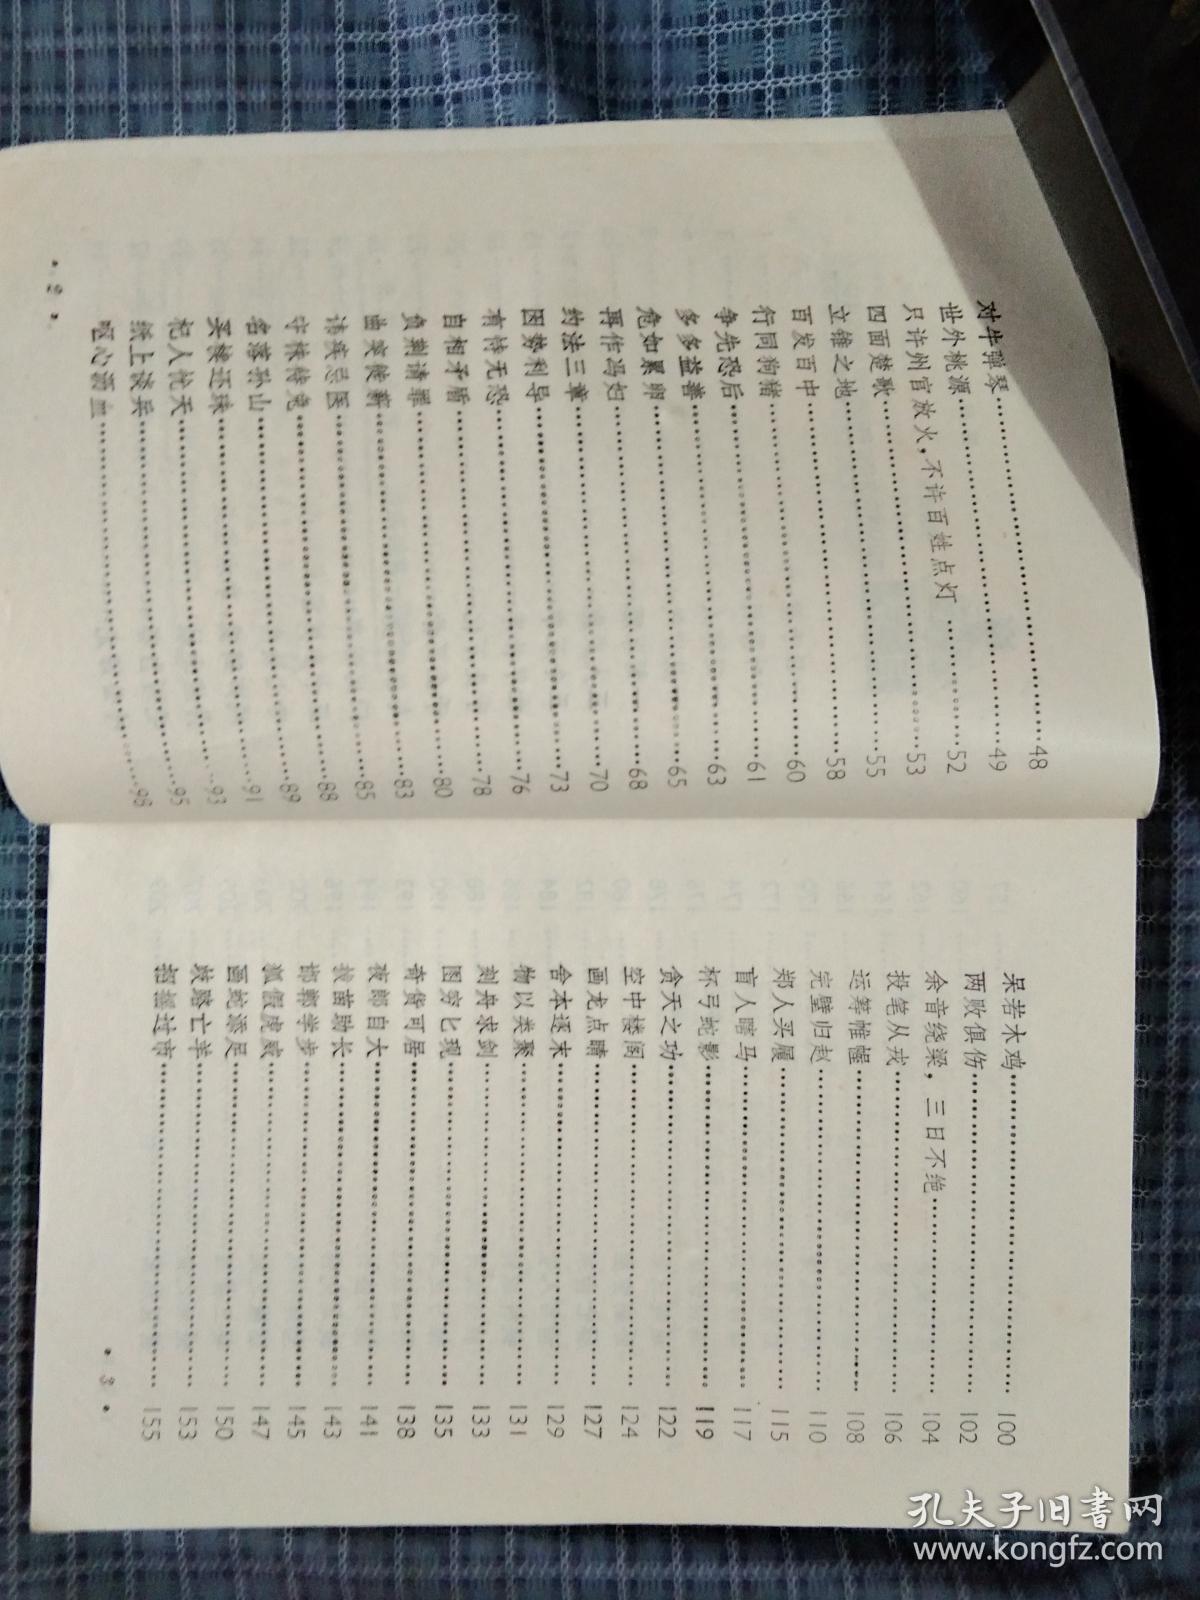 对牛弹琴……48
世外桃源……49
只许州官放火，不许百姓点灯……52
四面楚歌……53
立锥之地……55
百发百中……58
行同狗猪……60
争先恐后……61
多多益善……63
危如累卵……65
再作冯妇……68
约法三章……70
因势利导……73
有恃无恐……76
自相矛盾……78
负荆请罪……80
曲突徙薪……83
讳疾忌医……85
守株待兔……88
名落孙山……89
买椟还珠……91
杞人忧天……93
纸上谈兵……95
呕心沥血……98
· 2 ·
呆若木鸡……100
两败俱伤……102
余音绕梁，三日不绝……104
投笔从戎……106
运筹帷幄……108
完璧归赵……110
郑人买履……115
盲人瞎马……117
杯弓蛇影……119
贪天之功……122
空中楼阁……124
画龙点睛……127
舍本逐末……129
物以类聚……131
刻舟求剑……133
图穷匕现……135
奇货可居……138
夜郎自大……141
拔苗助长……143
邯郸学步……145
狐假虎威……147
画蛇添足……150
歧路亡羊……153
招摇过市……155
· 3 ·
孔夫子旧書网
www.kongfz.com